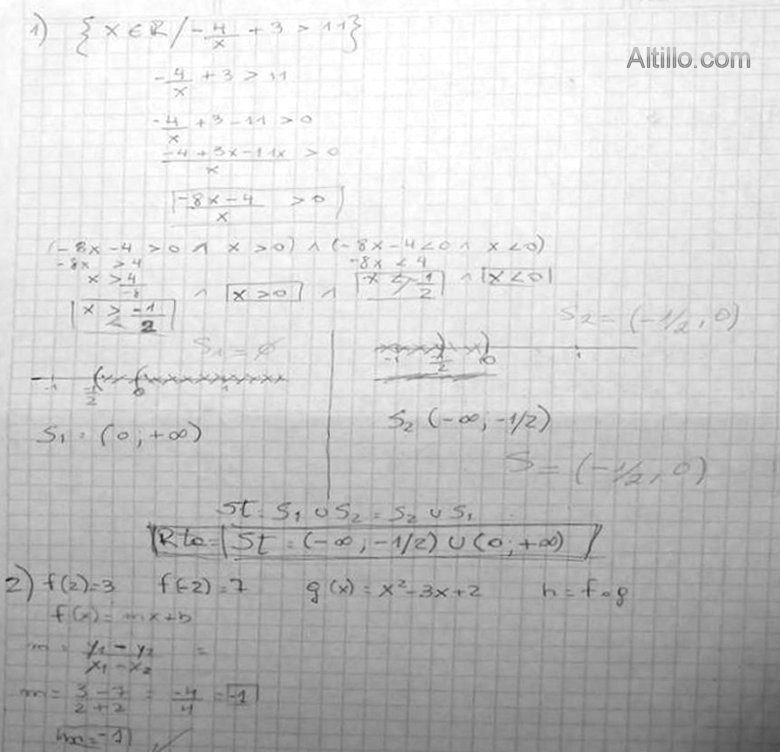 Altillo.com
1) { x ∈ R / -4/x + 3 > 11 }
-4/x + 3 > 11
-4/x + 3 - 11 > 0
(-4 + 3x - 11x)/x > 0
(-8x - 4)/x > 0
(-8x - 4 > 0 ∧ x > 0) ∧ (-8x - 4 < 0 ∧ x < 0)
-8x > 4 -8x < 4
x > 4/-8 ∧ x > 0 ∧ x < -1/2 ∧ x < 0
x > -1/2
<
S2 = (-1/2, 0)
S1 = ∅
-1 -1/2 0 1
-1 -1/2 0 1
S1 = (0; +∞) S2 (-∞, -1/2)
S = (-1/2, 0)
St = S1 ∪ S2 = S2 ∪ S1
Rta = St = (-∞, -1/2) ∪ (0; +∞)
2) f(2)=3 f(-2)=7 g(x) = x² - 3x + 2 h = f∘g
f(x) = mx + b
m = (y1 - y2)/(x1 - x2) =
m = (3 - 7)/(2 + 2) = -4/4 = -1
m = -1